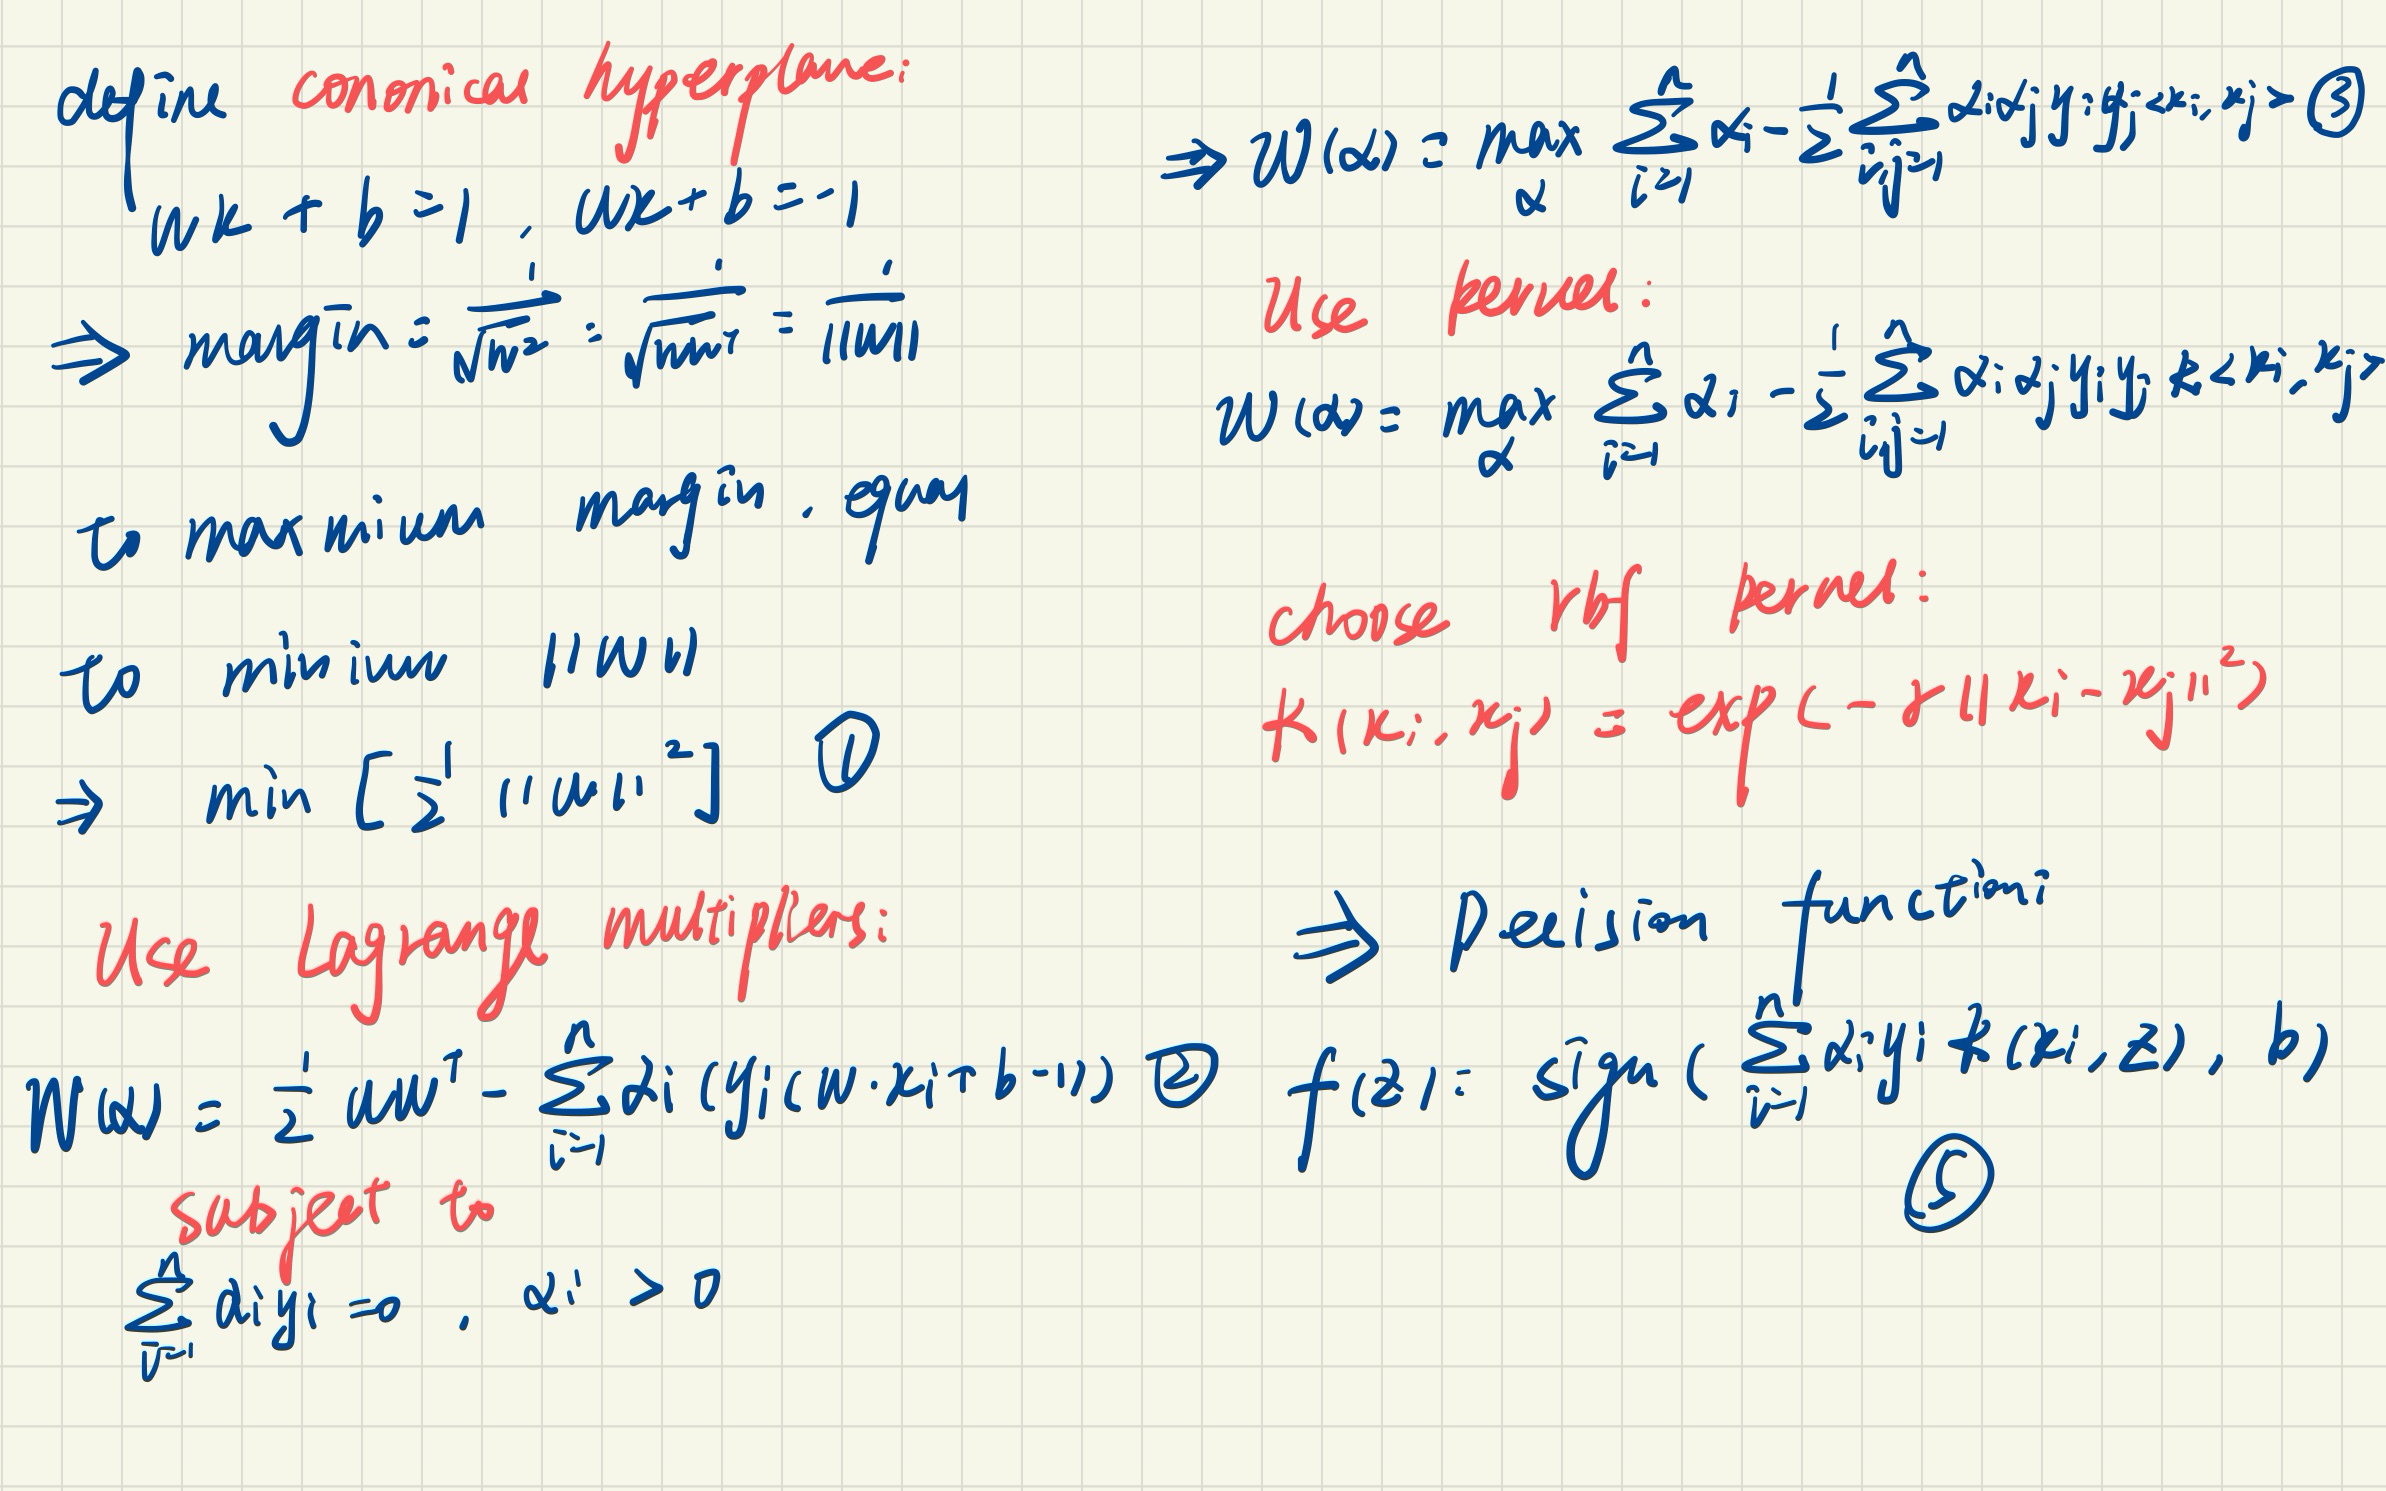 define canonical hyperplane:
wx + b = 1 , wx + b = -1
⇒ margin = 1/√w² = 1/√ww^T = 1/||w||
to maxmium margin , equay
to minium ||w||
⇒ min [ 1/2 ||w||² ] ①
Use Lagrange multipliers:
W(α) = 1/2 ww^T - Σ_{i=1}^{n} αi (yi(w·xi + b - 1)) ②
subject to
Σ_{i=1}^{n} αiyi = 0 , αi > 0
⇒ W(α) = max_α Σ_{i=1}^{n} αi - 1/2 Σ_{i,j=1}^{n} αiαjyiyj<xi, xj> ③
Use kernel:
W(α) = max_α Σ_{i=1}^{n} αi - 1/2 Σ_{i,j=1}^{n} αiαjyiyj k<xi, xj>
choose rbf kernel:
k(xi, xj) = exp(-γ||xi - xj||²)
⇒ Decision function:
f(z) = sign( Σ_{i=1}^{n} αiyi k(xi, z), b)
⑤